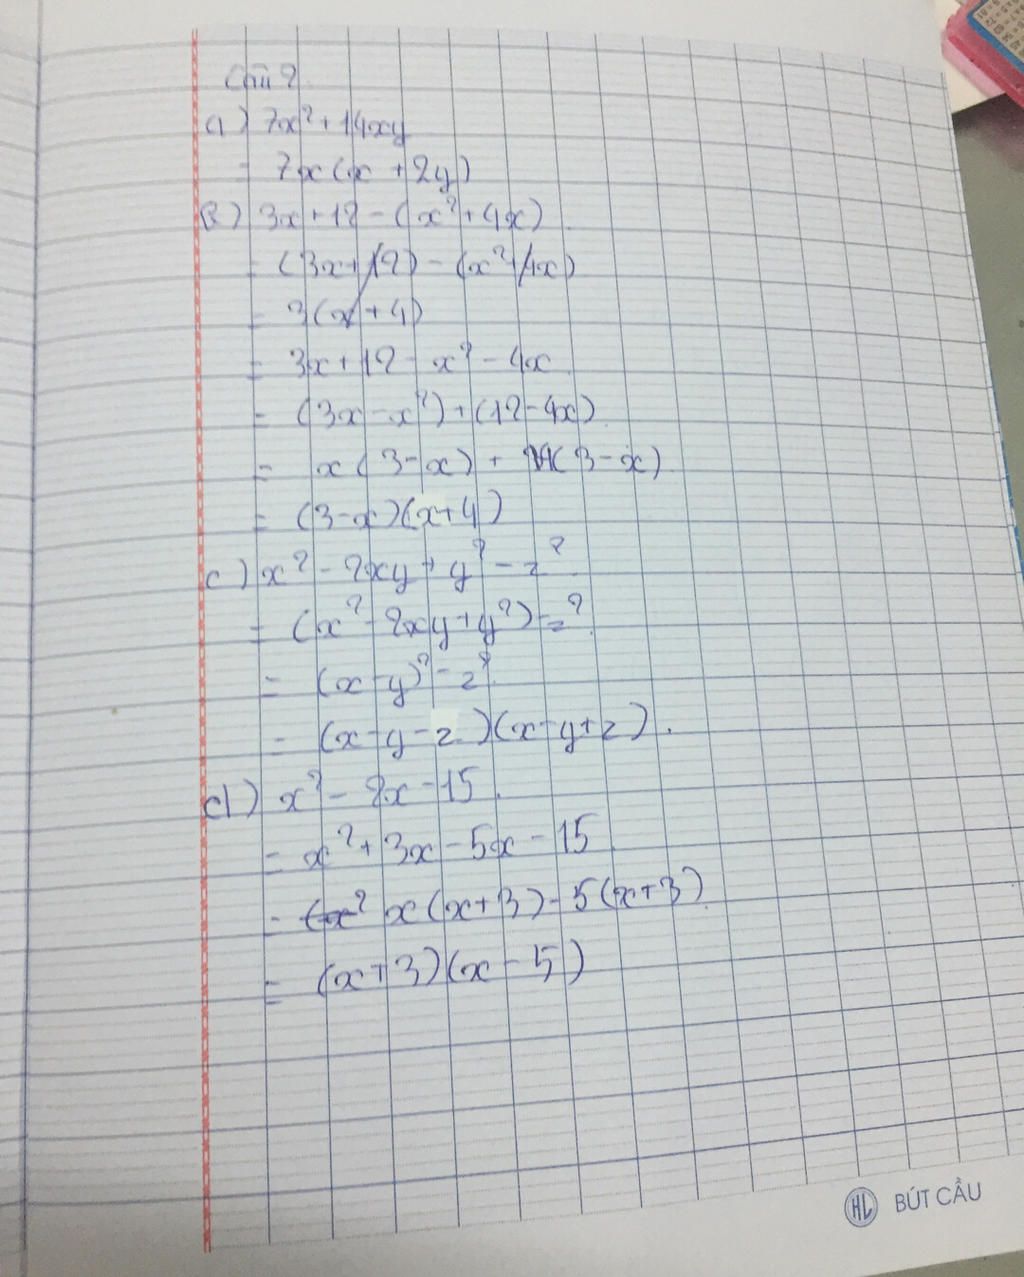 Câu 2
a) 7x² + 14xy
= 7x(x + 2y)
b) 3x + 12 - (x² + 4x)
= (3x + 12) - (x² + 4x)
= 3(x + 4)
= 3x + 12 - x² - 4x
= (3x - x²) + (12 - 4x)
= x(3 - x) + 4(3 - x)
= (3 - x)(x + 4)
c) x² - 2xy + y² - z²
= (x² - 2xy + y²) - z²
= (x - y)² - z²
= (x - y - z)(x - y + z).
d) x² - 2x - 15
= x² + 3x - 5x - 15
= (x² x(x + 3) - 5(x + 3)
= (x + 3)(x - 5)
HL BÚT CẦU